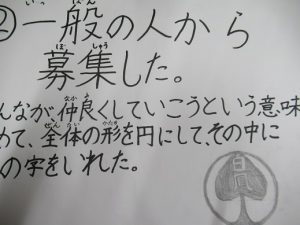 ②一般の人から
募集した。
んなが、仲良くしていこうという意味
めて、全体の形を円にして、その中に
の字をいれた。